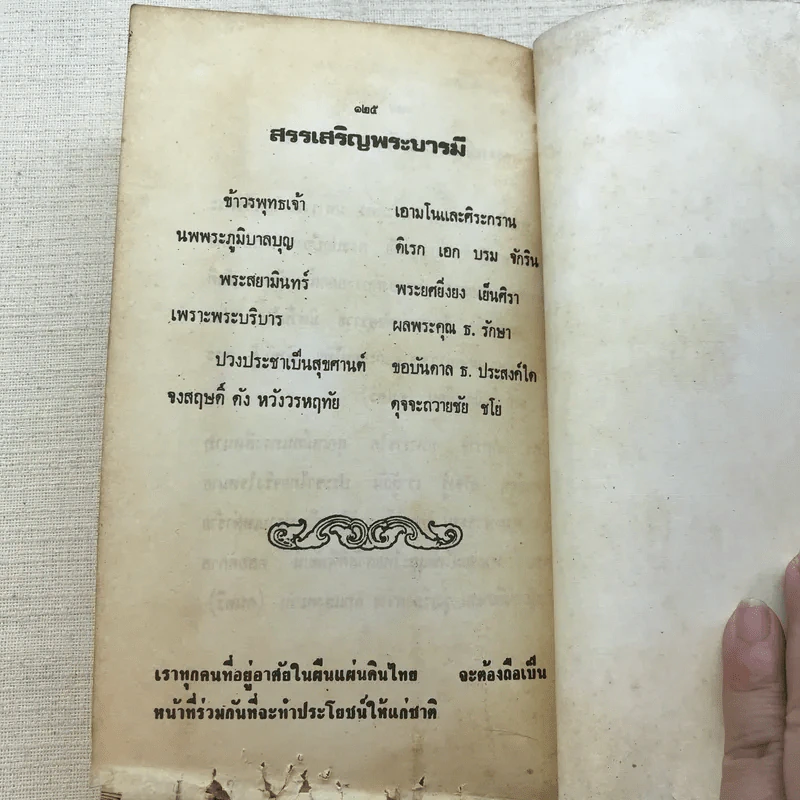 ๑๒๕
สรรเสริญพระบารมี
ข้าวรพุทธเจ้า เอามโนและศิระกราน
นพพระภูมิบาลบุญ ดิเรก เอก บรม จักริน
พระสยามินทร์ พระยศยิ่งยง เย็นศิรา
เพราะพระบริบาร ผลพระคุณ ธ. รักษา
ปวงประชาเป็นสุขศานต์ ขอบันดาล ธ. ประสงค์ใด
จงสฤษดิ์ ดัง หวังวรหฤทัย ดุจจะถวายชัย ชโย
เราทุกคนที่อยู่อาศัยในผืนแผ่นดินไทย จะต้องถือเป็น
หน้าที่ร่วมกันที่จะทำประโยชน์ให้แก่ชาติ